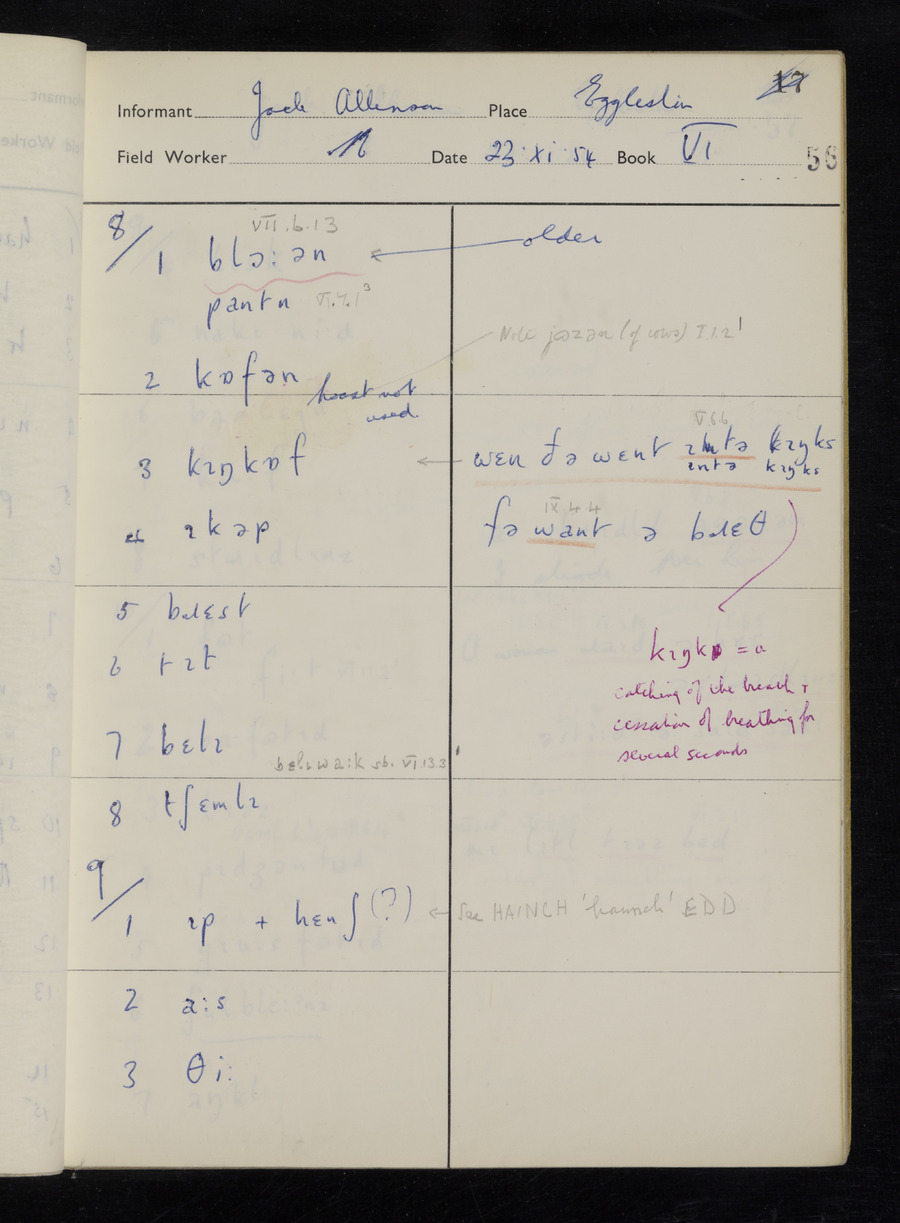 17
Informant Jack Allenson Place Eggleston
Field Worker Date 23·XI·54 Book VI
56
8/ VII.6.13
1 blɔ:ən ← older
pantn VI.7.1³
Note jɔəzən (of cows) I.1.2¹
2 kɒfən hoast not
used.
V.6.6
3 kɪŋkɒf ← wɛn ðə wɛnt ɪntə kɪŋks
ɪntə kɪŋks
IX 4 4
4 ɪkəp fə want ə bɹɛθ
5 bɹɛst
6 tɪt
kɪŋk = a
catching of the breath +
cessation of breathing for
several seconds
7 bɛlɪ
bɛlɪwa:k sb. VI.13.3
8 tʃɛmlɪ
9/
1 ɪp + hɛnʃ (?) ← See HAINCH 'haunch' EDD
2 a:s
3 θi: